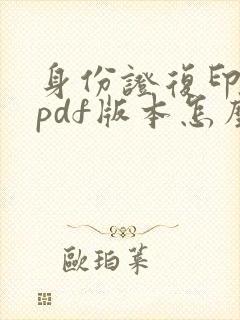 身份證復印
pdf版本怎
歐珀萊